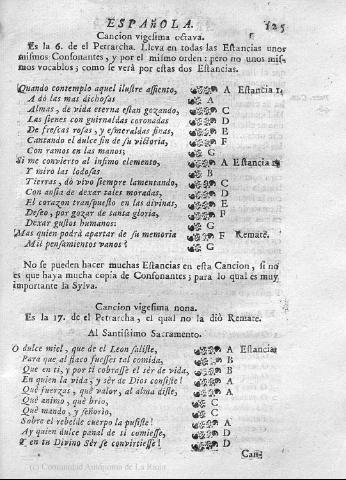 ESPAÑOLA. 125
Cancion vigesima octava.
Es la 6. de el Petrarcha. Lleva en todas las Estancias unos
mismos Consonantes, y por el mismo orden: pero no unos mis-
mos vocablos; como se verá por estas dos Estancias.
Quando contemplo aquel ilustre assiento, A Estancia 1.
A dó las mas dichosas B
Almas, de vida eterna estan gozando, C
Las sienes con guirnaldas coronadas D
De frescas rosas, y esmeraldas finas, E
Cantando el dulce fin de su victoria, F
Con ramos en las manos; G
Si me convierto al infimo elemento, A Estancia 2.
Y miro las lodosas B
Tierras, dó vivo siempre lamentando, C
Con ansia de dexar tales moradas, D
El corazon transpuesto en las divinas, E
Deseo, por gozar de santa gloria, F
Dexar gustos humanos: G
Mas quien podrá apartar de su memoria F Remate.
Mil pensamientos vanos? G
No se pueden hacer muchas Estancias en esta Cancion, si no
es que haya mucha copia de Consonantes; para lo qual es muy
importante la Sylva.
Cancion vigesima nona.
Es la 17. de el Petrarcha, el qual no la dió Remate.
Al Santissimo Sacramento.
O dulce miel, que de el Leon saliste, A Estancia
Para que al flaco fuesses tal comida, B
Que en ti, y por ti cobrasse el sér de vida, B
En quien la vida, y sér de Dios consiste! A
Què fuerzas, què valor, al alma diste, A
Què animo, què brio, C
Què mando, y señorio, C
Sobre el rebelde cuerpo la pusiste! A
Ay quien dulce panal de si comiesse, D
Y en tu Divino Sér se convirtiesse! D
Can-
(c) Comunidad Autónoma de La Rioja